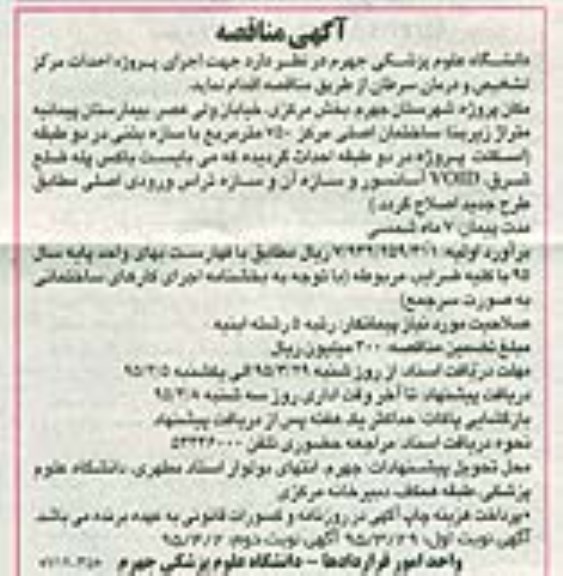 آگهی مناقصه
دانشگاه علوم پزشکی جهرم در نظر دارد جهت اجرای پروژه احداث مرکز
تشخیص و درمان سرطان از طریق مناقصه اقدام نماید.
مکان پروژه: شهرستان جهرم، بخش مرکزی، خیابان ولی عصر، بیمارستان پیمانیه
متراژ زیربنا: ساختمان اصلی مرکز ۷۵۰ مترمربع با سازه بتنی در دو طبقه
(اسکلت پروژه در دو طبقه احداث گردیده که می بایست باکس پله ضلع
شرق، VOID آسانسور و سازه آن و سازه تراس ورودی اصلی مطابق
طرح جدید اصلاح گردد.)
مدت پیمان: ۷ ماه شمسی
برآورد اولیه: ریال مطابق با فهارست بهای واحد پایه سال
۹۵ با کلیه ضرایب مربوطه (با توجه به بخشنامه اجرای کارهای ساختمانی
به صورت سرجمع)
صلاحیت مورد نیاز پیمانکار: رتبه ۵ رشته ابنیه
مبلغ تضمین مناقصه: ۳۰۰ میلیون ریال
مهلت دریافت اسناد: از روز شنبه ۹۵/۲/۲۹ الی یکشنبه ۹۵/۳/۵
دریافت پیشنهاد: تا آخر وقت اداری روز سه شنبه
بازگشایی پاکات: حداکثر یک هفته پس از دریافت پیشنهاد
نحوه دریافت اسناد: مراجعه حضوری تلفن
محل تحویل پیشنهادات: جهرم، انتهای بولوار استاد مطهری، دانشگاه علوم
پزشکی، طبقه همکف، دبیرخانه مرکزی
*پرداخت هزینه چاپ آگهی در روزنامه و کسورات قانونی به عهده برنده می باشد.
آگهی نوبت اول: آگهی نوبت دوم:
واحد امور قراردادها – دانشگاه علوم پزشکی جهرم